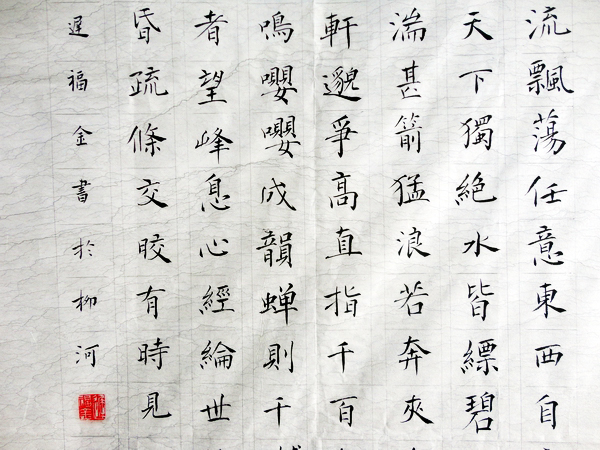 流飄蕩任意東西自
天下獨絕水皆縹碧
湍甚箭猛浪若奔夾
軒邈爭高直指千百
鳴嚶嚶成韻蝉則千
者望峰息心經綸世
昏疏條交映有時見
遲福金書於柳河